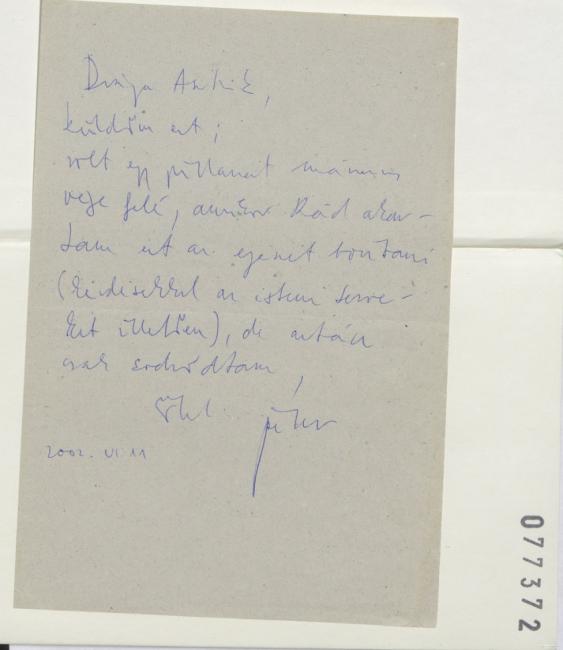 Drága
küldöm ezt;
volt egy pillanat
vége felé, amikor Rád akar-
tam ezt az egészet borítani
(kérdésekkel az isteni terve-
ket illetően), de aztán
csak sodródtam,
Ölel Péter
2002. VI. 11
077372